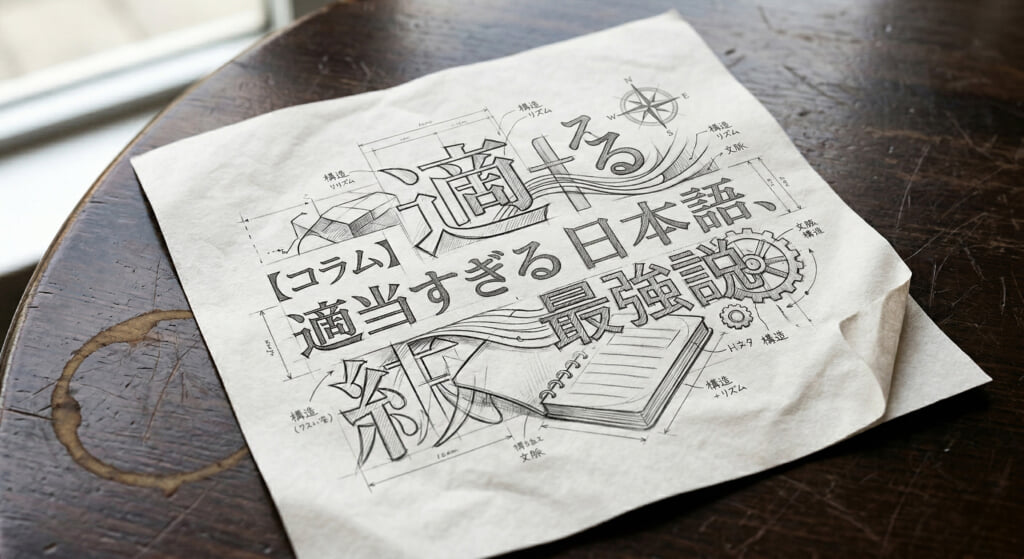 N
E
S
W
構造
リズム
構造
リズム
文脈
構造
リズム
適
する
【コラム】
適当すぎる日本語、
最強説
文脈
構造
構造
構造
リズム
構造
文脈